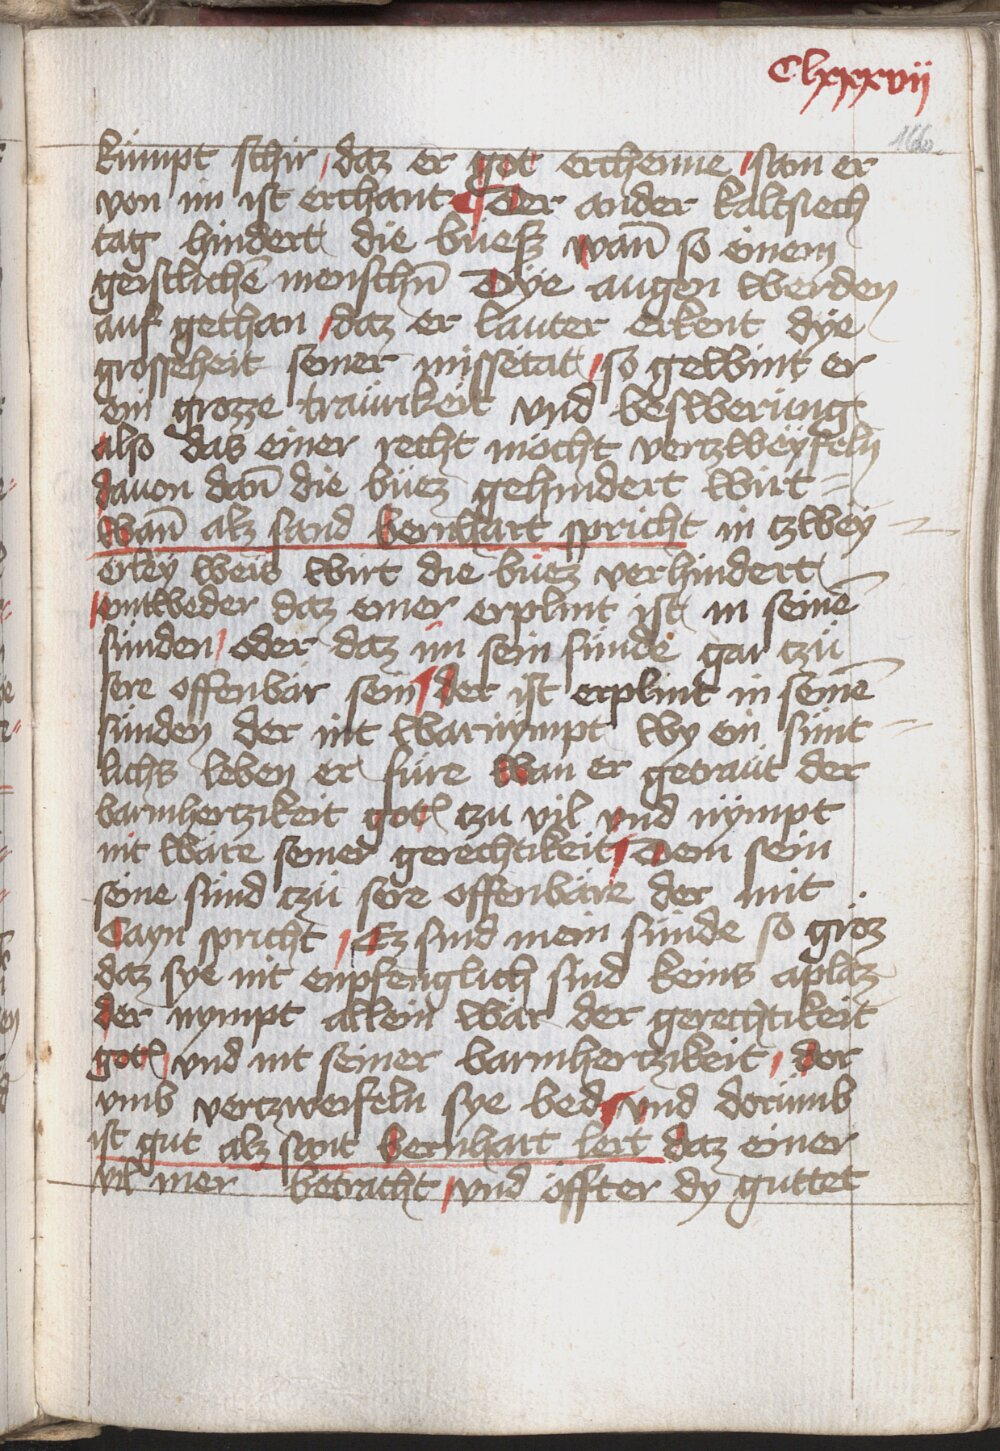 Clxxxvii
166.
kümpt schir / daz er got erchenne / sam er
von im ist erchant ¶ Der ander kaltsiech
tag hindert die büesz wañ so einem
geistlichē menschñ Dye augen werden
auf gethan / daz er lauter erkent dye
grosseheit seiner missetat / so gewint er
ein grozze traurikeit vnd beswerung
also das einer recht möcht vertzweyfeln
dauon dañ die büez gehindert wirt =
Wañ alz sand bernhart spricht in tzwey
erley weis wirt die büez verhindert
entweder daz einer erplint ist in seinē
sünden / oder daz im sein sünde gar tzü
sere offenbär sein ¶ der ist erplint in seinē
sünden der nit warnympt wy ein sünt =
lichs leben er füre wan er getraut der
barmhertzikeit gotz tzu vil vnd nympt
nit ware seiner gerechtikeit ¶ Dem sein
seine sünd tzü sere offenbäre der mit
Cayn spricht / Ez sind mein sünde so gröz
daz sye nit enpfenglich sind keins aplaz
der nympt allein war der gerechtikeit
gotz / vnd nit seiner barmhertzikeit / dor
vmb vertzweifeln sye bed ¶ vnd dorümb
ist gut alz sant bernhart lert daz einer
vil mer betracht / vnd öffter dy guttet